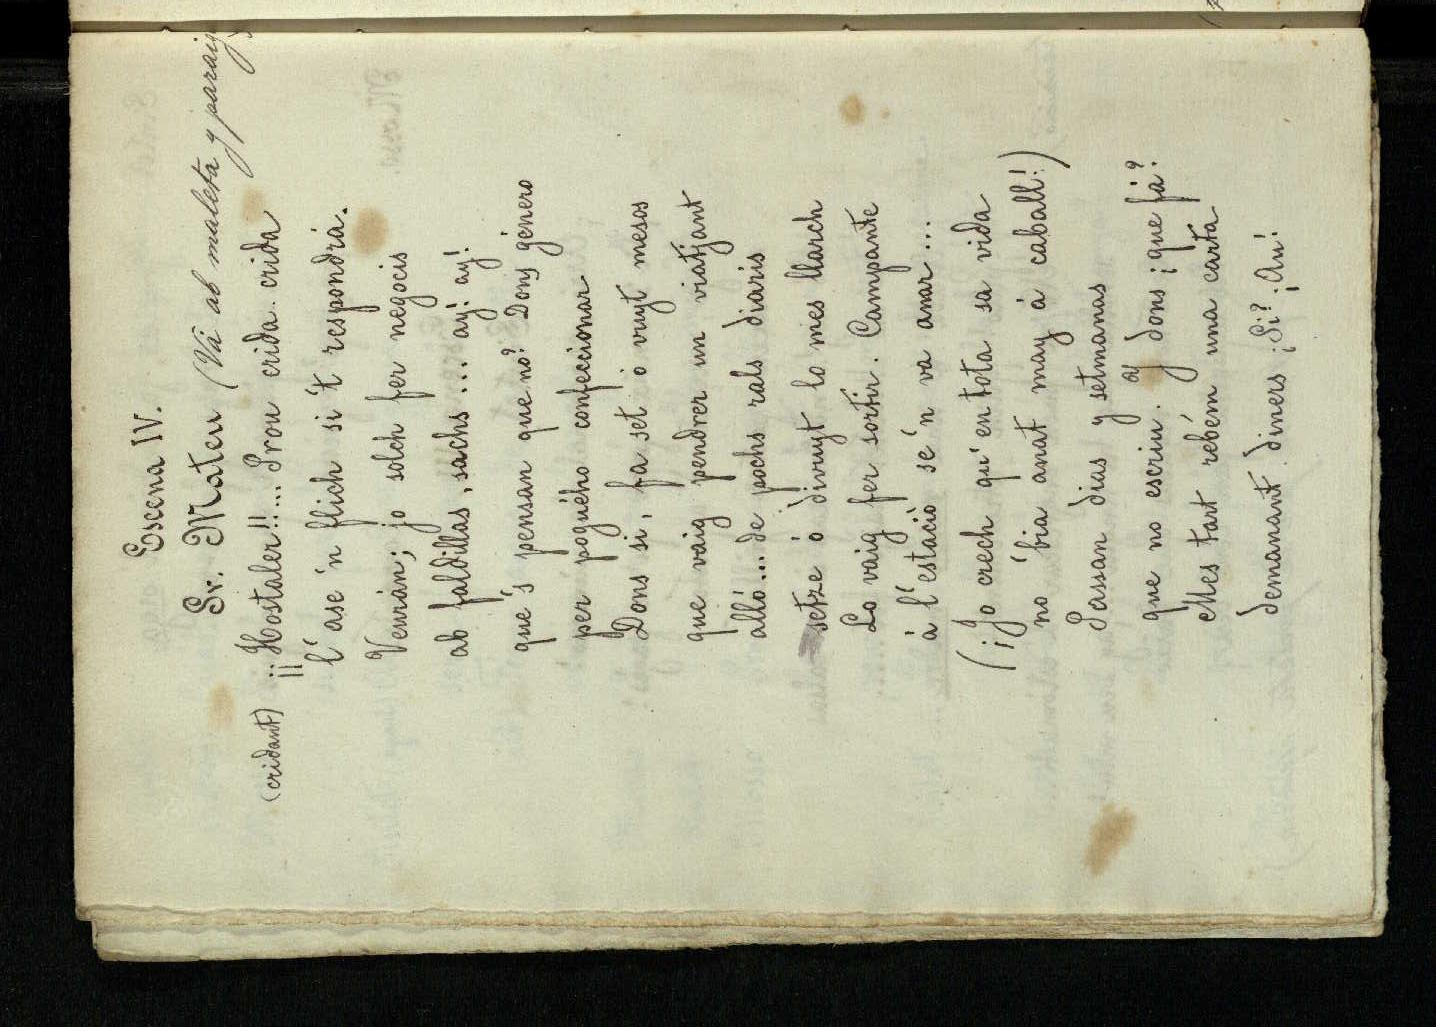 Escena IV.
Sr. Mateu (Vá ab maleta y paraig
(cridant) ¡¡¡Hostaler!!!... Prou crida.. crida
l' ase 'n flich si 't respondrá.
Venián; jo solch fer negocis
ab faldillas, sachs... ay! ay!
que 's pensan que no? Dons género
per poguého confeccionar
Dons si, fa set ó vuyt mesos
que vaig pendrer un viatjant
alló... de pochs rals diaris
setze ó divuyt lo mes llarch
Lo vaig fer sortir. Campante
á l' estació se 'n va anar....
(¡¡Jo crech qu' en tota sa vida
no 'bia anat may á caball!)
Passan dias y setmanas
que no escriu. y dons ¡que fá?
Mes tart rebém una carta
demanant diners ¿Si? ¡Au!